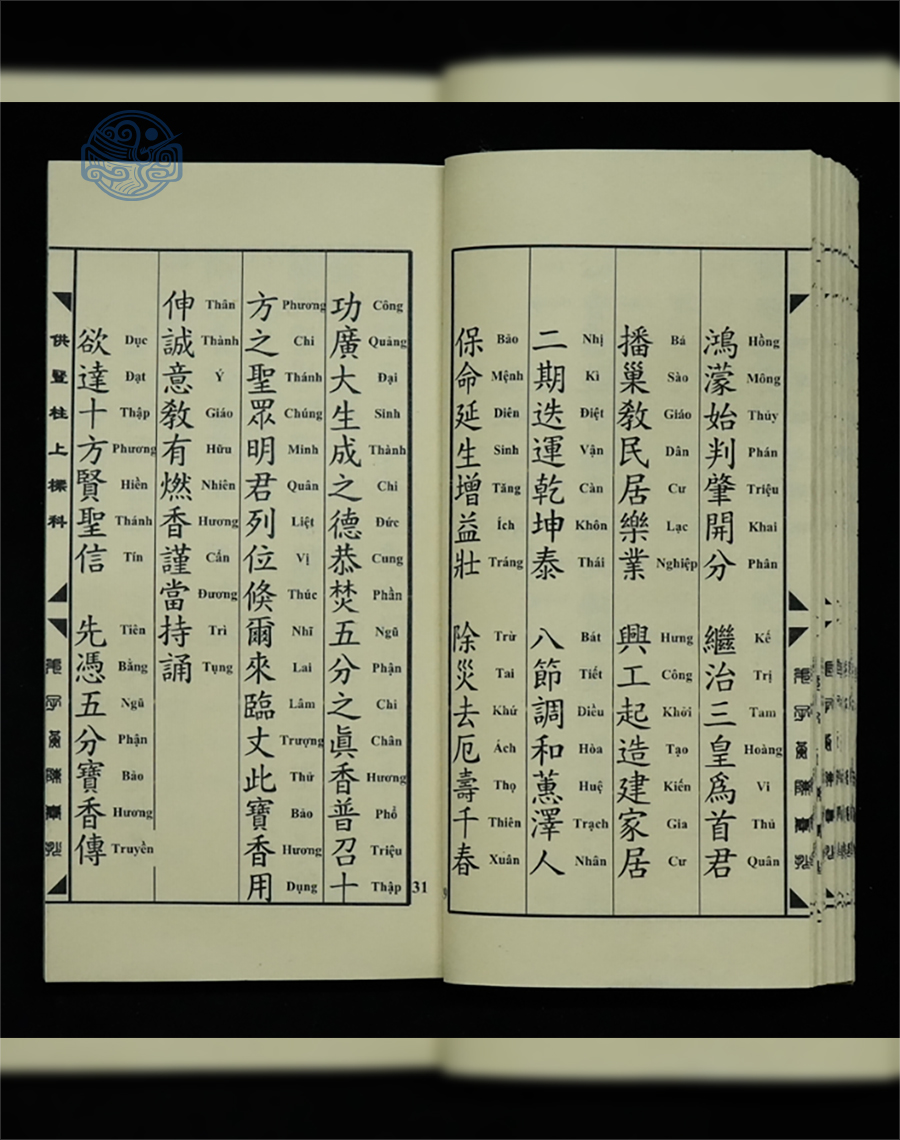 Hồng Mông Thủy Phán Triệu Khai Phân Kế Trị Tam Hoàng Vi Thủ Quân
鴻濛始判肇開分 繼治三皇爲首君
Bá Sào Giáo Dân Cư Lạc Nghiệp Hưng Công Khởi Tạo Kiến Gia Cư
播巢教民居樂業 興工起造建家居
Nhị Kì Điệt Vận Càn Khôn Thái Bát Tiết Điều Hòa Huệ Trạch Nhân
二期迭運乾坤泰 八節調和蕙澤人
Bảo Mệnh Diên Sinh Tăng Ích Tráng Trừ Tai Khứ Ách Thọ Thiên Xuân
保命延生增益壯 除災去厄壽千春
31
Công Quảng Đại Sinh Thành Chi Đức Cung Phần Ngũ Phận Chi Chân Hương Phổ Triệu Thập
功廣大生成之德恭焚五分之眞香普召十
Phương Chi Thánh Chúng Minh Quân Liệt Vị Thúc Nhĩ Lai Lâm Trượng Thử Bảo Hương Dụng
方之聖眾明君列位倏爾來臨丈此寶香用
Thân Thành Ý Giáo Hữu Nhiên Hương Cẩn Đương Trì Tụng
伸誠意教有燃香謹當持誦
Dục Đạt Thập Phương Hiền Thánh Tín Tiên Bằng Ngũ Phận Bảo Hương Truyền
欲達十方賢聖信 先憑五分寶香傳
供豎柱上樑科